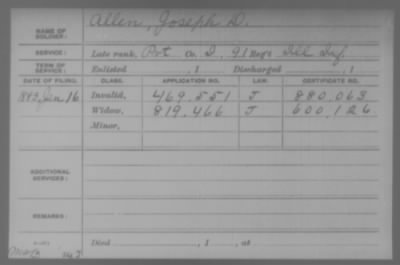 NAME OF SOLDIER: Allen, Joseph D.
SERVICE: Late rank, Pvt Co. D, 91 Reg't Ill Inf.
TERM OF SERVICE: Enlisted , 1 Discharged , 1
DATE OF FILING. CLASS. APPLICATION NO. LAW. CERTIFICATE NO.
1883, Jan 16 Invalid, 469.551 J 880.063
Widow, 819.466 J 600,126
Minor,
ADDITIONAL SERVICES:
REMARKS:
Died , 1 , at